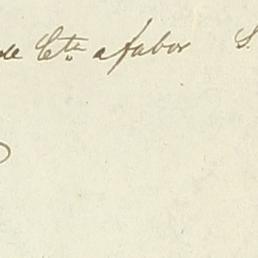 de Cta. a fabor S.